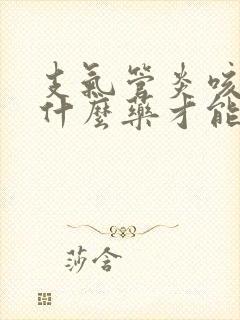 支氣管炎咳
什麼藥才能
莎含